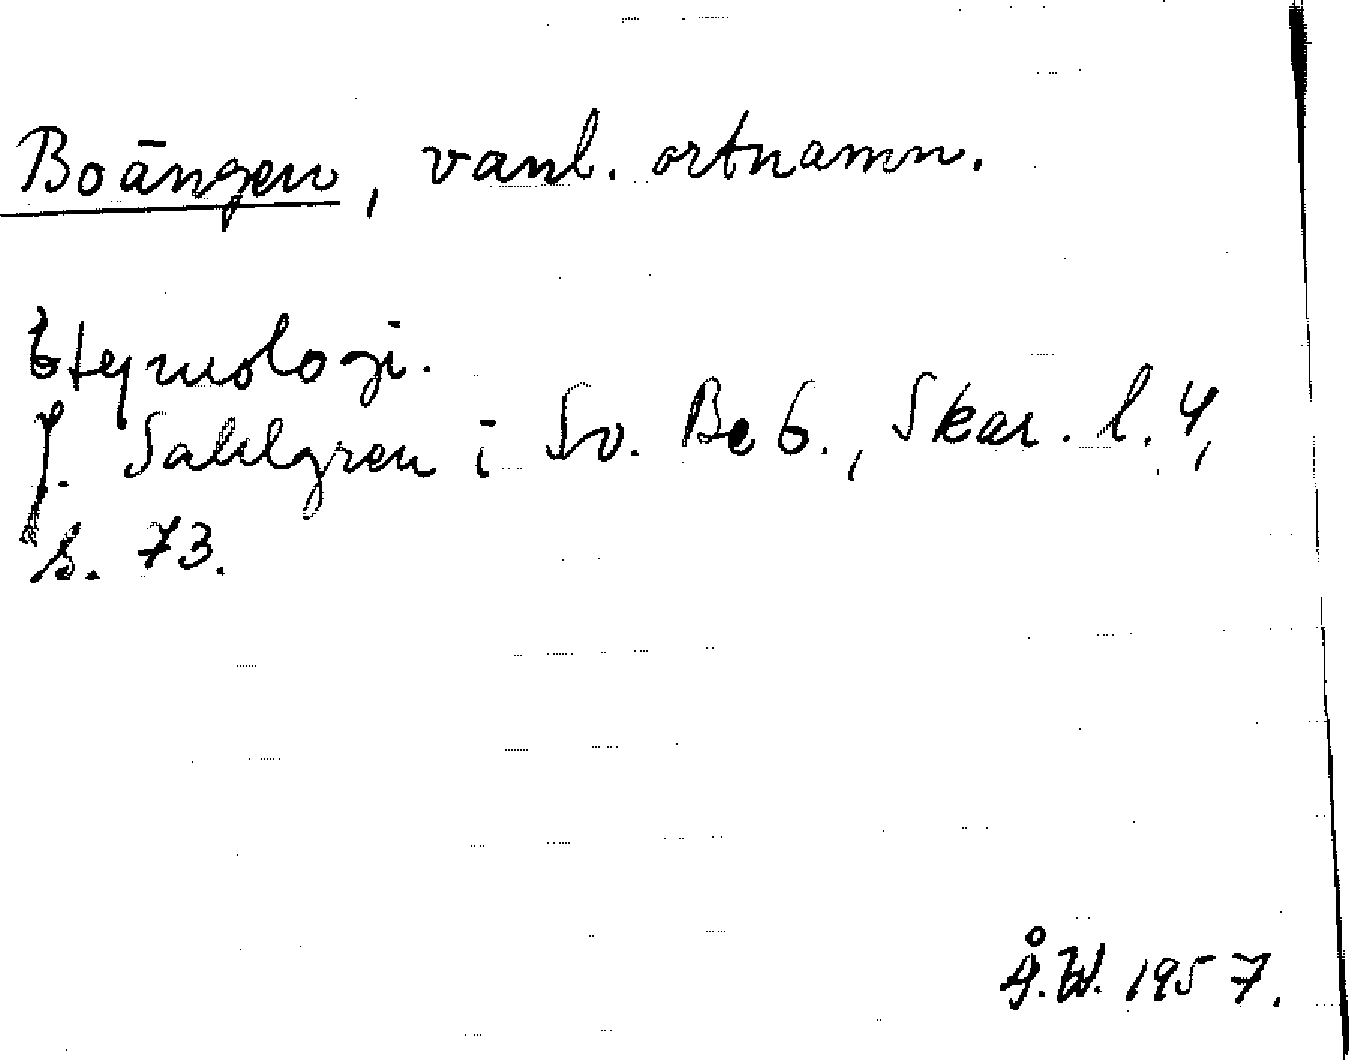 Boängen, vanl. ortnamn.
Etymologi.
J. Sahlgren i Sv. Beb., Skar. l. 4,
s. 73.
Å.W. 1957.